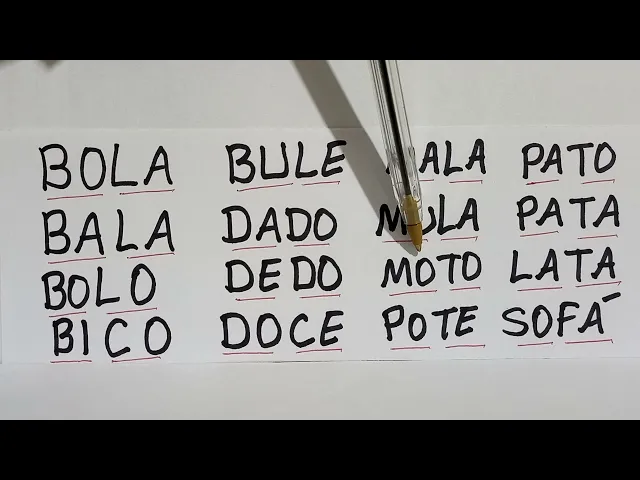 BOLA BULE PATO
BALA DADO MULA PATA
BOLO DEDO MOTO LATA
BICO DOCE POTE SOFÁ